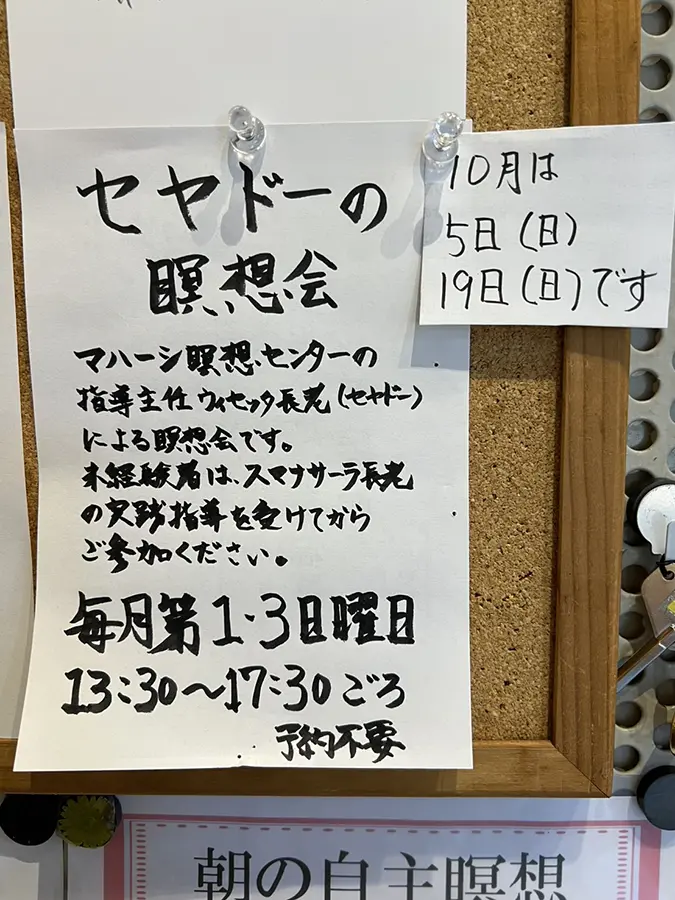 セヤドーの
瞑想会
マハーシ瞑想センターの
指導主任ウィセッタ長老(セヤドー)
による瞑想会です。
未経験者は、スマナサーラ長老
の実践指導を受けてから
ご参加ください。
毎月第1・3日曜日
13:30〜17:30ごろ
予約不要
10月は
5日(日)
19日(日)です
朝の自主瞑想